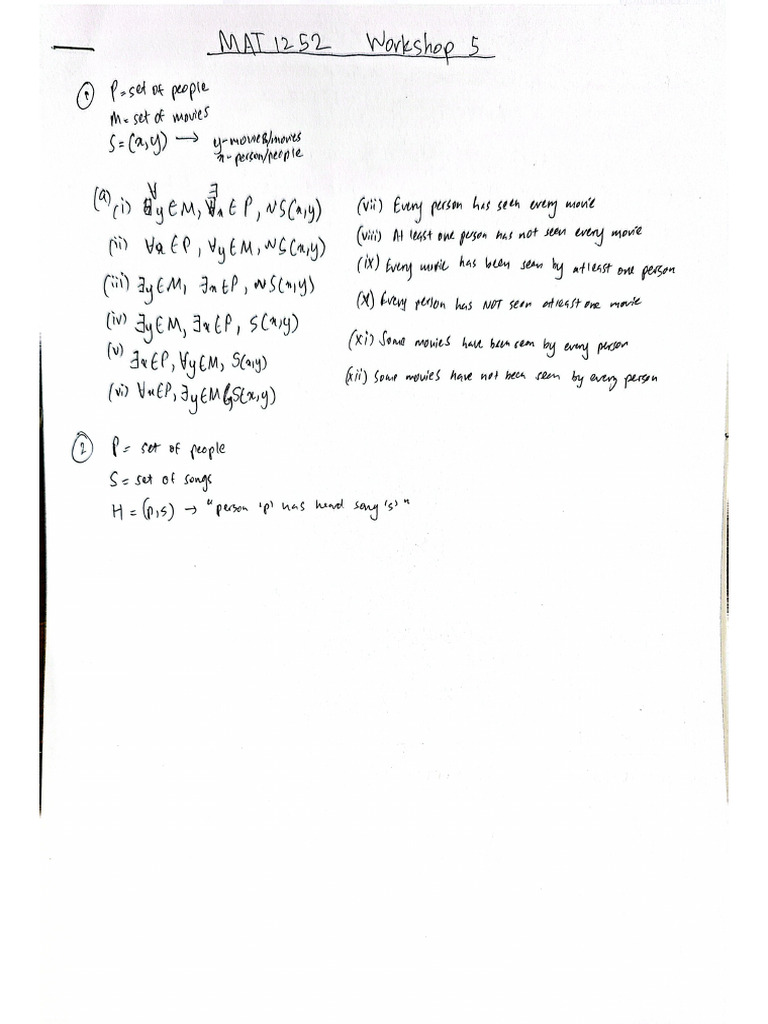 MAT 1252 Workshop 5
① P = set of people
M = set of movies
S = (x,y) → y - movies/movies
x - person/people
(a) (i) ∀y∈M, ∃x∈P, ~S(x,y)
(ii) ∀x∈P, ∀y∈M, ~S(x,y)
(iii) ∃y∈M, ∃x∈P, ~S(x,y)
(iv) ∃y∈M, ∃x∈P, S(x,y)
(v) ∃x∈P, ∀y∈M, S(x,y)
(vi) ∀x∈P, ∃y∈M, S(x,y)
(vii) Every person has seen every movie
(viii) At least one person has not seen every movie
(ix) Every movie has been seen by atleast one person
(x) Every person has NOT seen atleast one movie
(xi) Some movies have been seen by every person
(xii) Some movies have not been seen by every person
② P = set of people
S = set of songs
H = (p,s) → "person 'p' has heard song 's'"